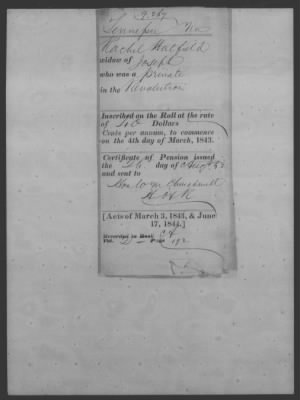 9.269
Tennessee
Rachel Hatfield
widow of Joseph
who was a private
in the Revolution
Inscribed on the Roll at the rate
of 40 Dollars
Cents per annum, to commence
on the 4th day of March, 1843.
Certificate of Pension issued
the day of
and sent to
Hon Wm Churchwell
H of R
[Acts of March 3, 1843, & June
17, 1844.]
Recorded in Book
Vol. Page 192